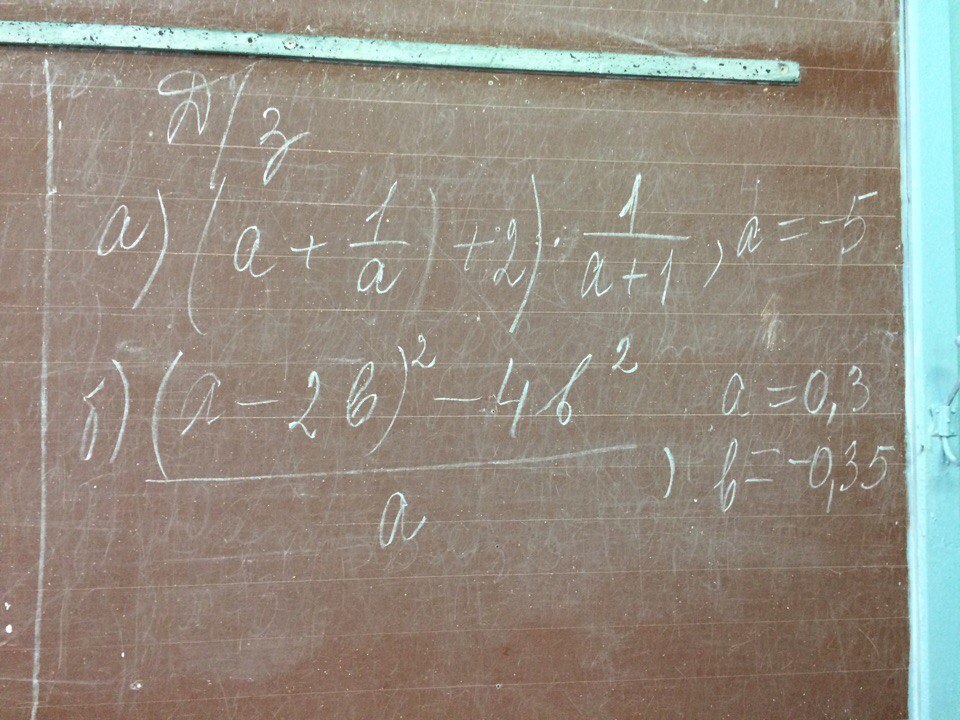 Д/з
а) (a + 1/a) + 2) · 1/(a+1), a = -5
б) (a - 2b)² - 4b² / a, a = 0,3
b = -0,35